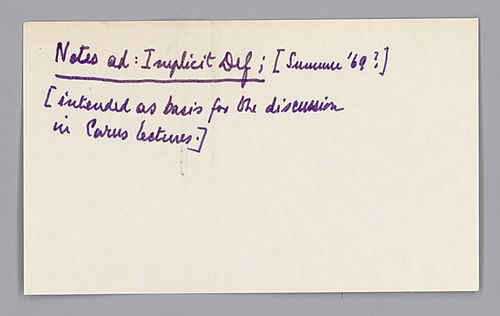 Notes ad: Implicit Def; [Summer '69?]
[intended as basis for the discussion
in Carus lectures.]